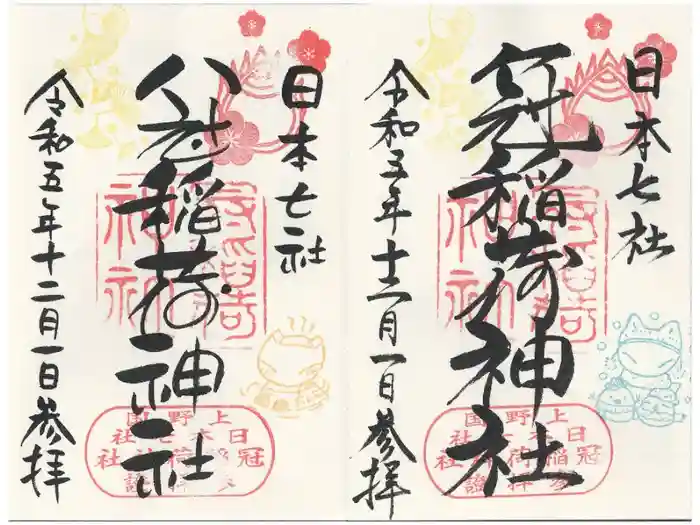 日本七社
冠稲荷神社
令和五年十二月一日参拝
上野国
日本七社
冠稲荷神社
参拝證
日本七社
冠稲荷神社
令和五年十二月一日参拝
上野国
日本七社
冠稲荷神社
参拝證